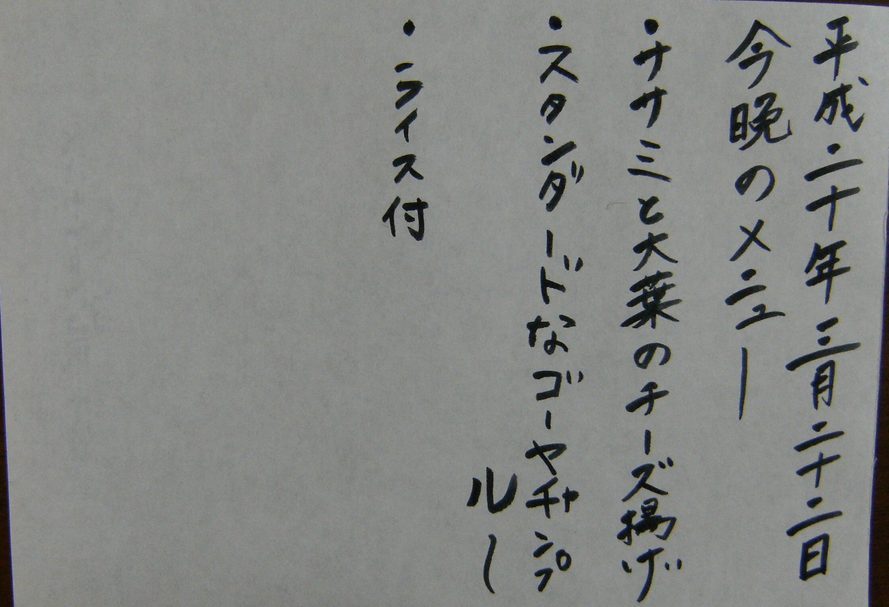 平成二十年三月二十二日
今晩のメニュー
・ササミと大葉のチーズ揚げ
・スタンダードなゴーヤチャンプ
ルー
・ライス付